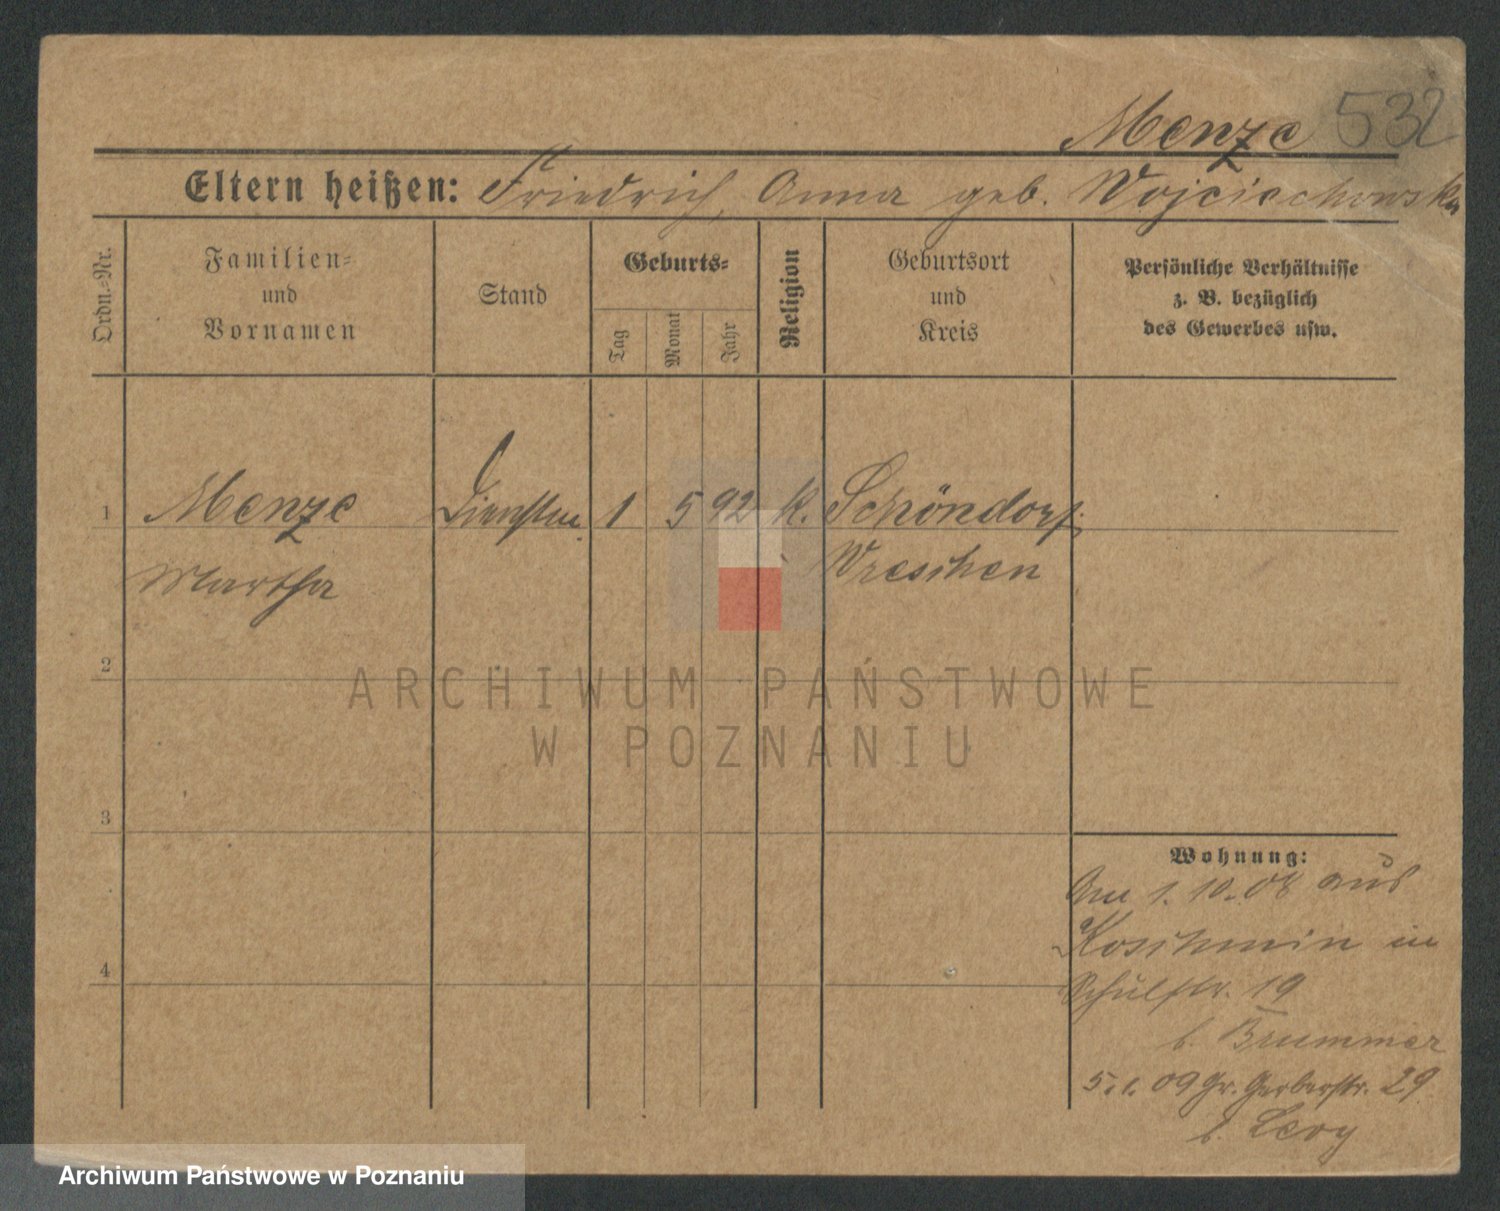 Menze 532
Eltern heißen: Friedrich, Anna geb. Wojciechowska
Ordn.-Nr.
Familien-
und
Vornamen
Stand
Geburts-
Tag
Monat
Jahr
Religion
Geburtsort
und
Kreis
Persönliche Verhältnisse
z. B. bezüglich
des Gewerbes usw.
1 Menze 1 5 92 k. Schöndorf
Martha Wreschen
2
3
4
Wohnung:
Am 1. 10. 08 aus
Koschmin in
Schulstr. 19
b. Brummer
5. 1. 09 Gr. Gerberstr. 29
b. Levy
ARCHIWUM PAŃSTWOWE
W POZNANIU
Archiwum Państwowe w Poznaniu